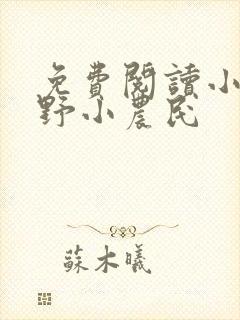 免費閱讀小
野小農民
蘇木曦